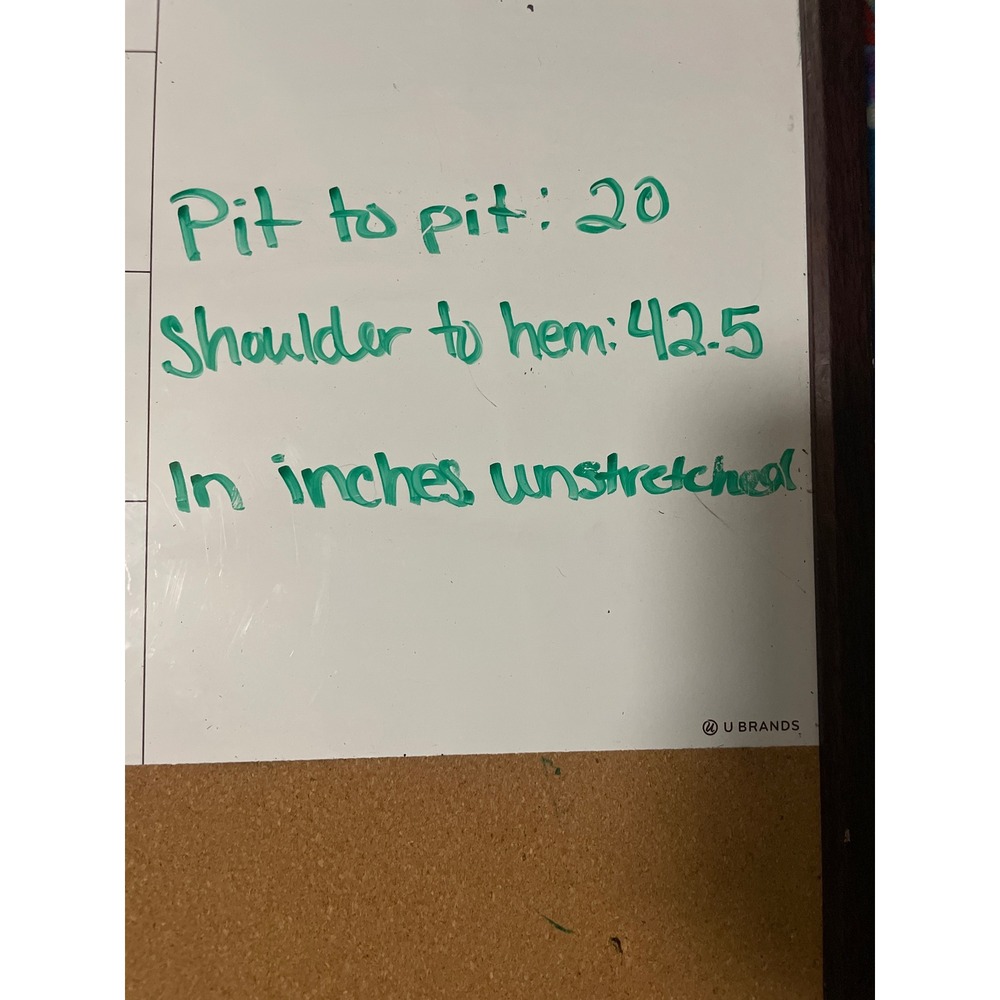 Pit to pit: 20
Shoulder to hem: 42.5
In inches unstretched
U BRANDS